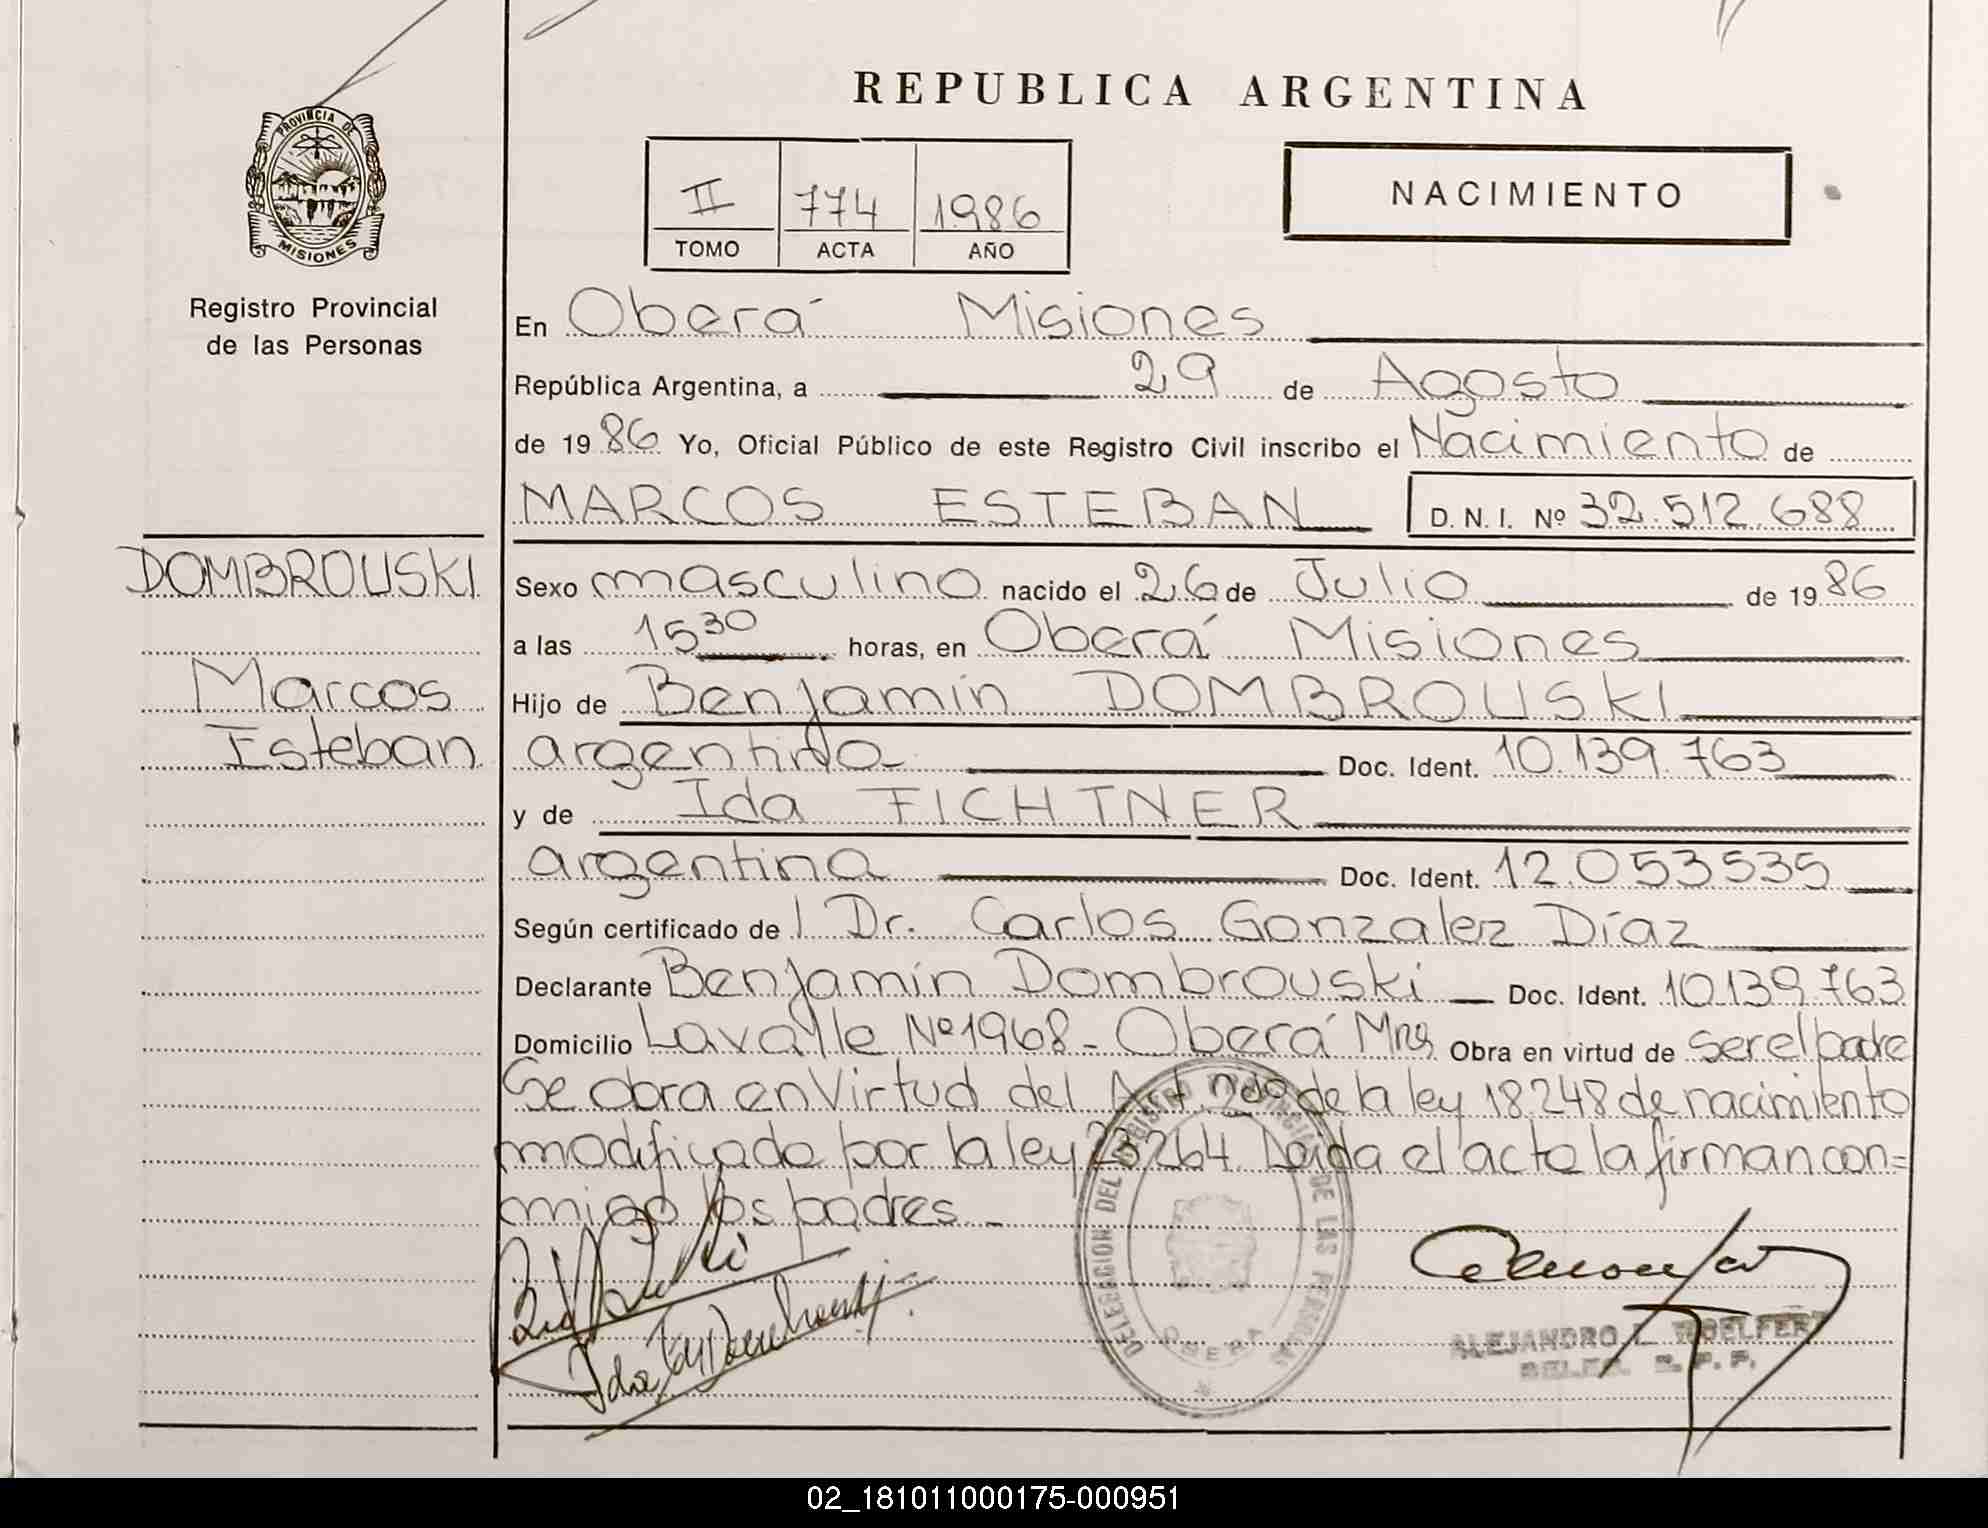 REPUBLICA ARGENTINA
PROVINCIA DE
MISIONES
II 774 1986
TOMO ACTA AÑO
NACIMIENTO
Registro Provincial
de las Personas
En Oberá Misiones
República Argentina, a 29 de Agosto
de 1986 Yo, Oficial Público de este Registro Civil inscribo el Nacimiento de
MARCOS ESTEBAN D. N. I. Nº 32.512.688
DOMBROUSKI
Marcos
Esteban
Sexo masculino nacido el 26 de Julio de 1986
a las 15 30 horas, en Oberá Misiones
Hijo de Benjamín DOMBROUSKI
argentino Doc. Ident. 10.139.763
y de Ida FICHTNER
argentina Doc. Ident. 12.053535
Según certificado de l Dr. Carlos Gonzalez Díaz
Declarante Benjamín Dombrouski Doc. Ident. 10.139.763
Domicilio Lavalle Nº 1968 - Oberá Mns Obra en virtud de ser el padre
Se obra en Virtud del Art. 2do de la ley 18.248 de nacimiento
modificado por la ley 23.264. Leida el acta la firman con=
migo los padres -
DELEGACION DEL REGISTRO PROVINCIAL DE LAS PERSONAS
OBERA
ALEJANDRO L. WOELFERT
DELEG. R. P. P.
02_181011000175-000951